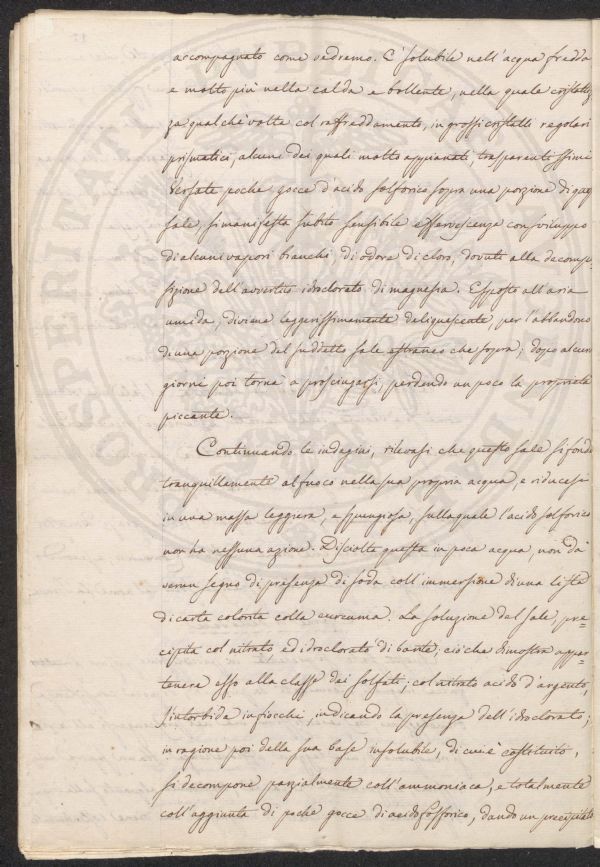 accompagnato come vedremo. E' solubile nell'acqua fredda
e molto più nella calda e bollente, nella quale cristaliz
za qualche volta col raffreddamento, in grossi cristalli regolari
prismatici, alcuni dei quali molto appianati, trasparentissimi
Versate poche gocce d'acido solforico sopra una porzione di ques
sale, si manifesta subito sensibile effervescenza con sviluppo
di alcuni vapori bianchi di odore di cloro, dovuti alla decompo
sizione dell'avvertito idroclorato di magnesia. Esposto all'aria
umida, diviene leggerissimamente deliquescente, per l'abbandono
di una porzione del suddetto sale estraneo che sopra; dopo alcuni
giorni poi torna a prosciugarsi, perdendo un poco la proprietà
piccante.
Continuando le indagini, rilevasi che questo sale si fonde
tranquillamente al fuoco nella sua propria acqua, e riducesi
in una massa leggiera, e spungiosa, sulla quale l'acido solforico
non ha nessuna azione. Disciolta questa in poca acqua, non dà
verun segno di presenza di soda coll'immersione di una lista
di carta colorita colla curcuma. La soluzione del sale, pre=
cipita col nitrato ed idroclorato di barite; ciò che dimostra appar=
tenere esso alla classe dei solfati; col nitrato acido d'argento,
s'intorbida in fiocchi, indicando la presenza dell'idroclorato;
in ragione poi della sua base insolubile, di cui è costituito,
si decompone parzialmente coll'ammoniaca, e totalmente
coll'aggiunta di poche gocce di acido fosforico, dando un precipitato
PROSPERITATI